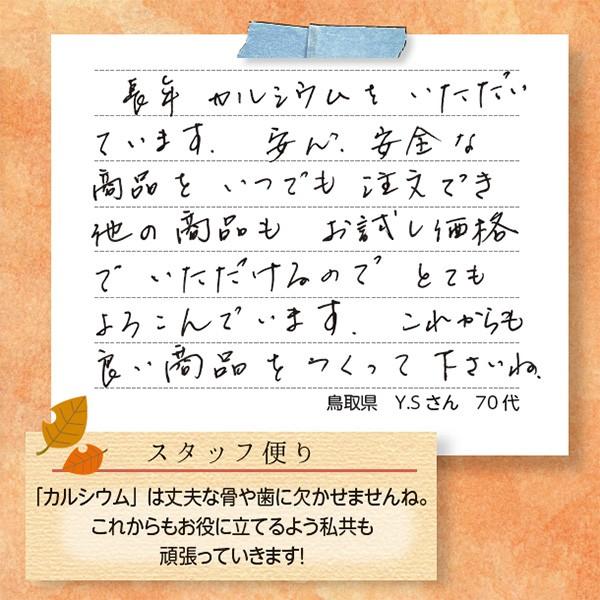 長年 カルシウムを いただい
ています. 安心. 安全な
商品を いつでも 注文でき
他の商品も お試し価格
で いただけるので とても
よろこんでいます. これからも
良い商品を つくって 下さいね.
鳥取県 Y.Sさん 70代
スタッフ便り
「カルシウム」は丈夫な骨や歯に欠かせませんね。
これからもお役に立てるよう私共も
頑張っていきます!